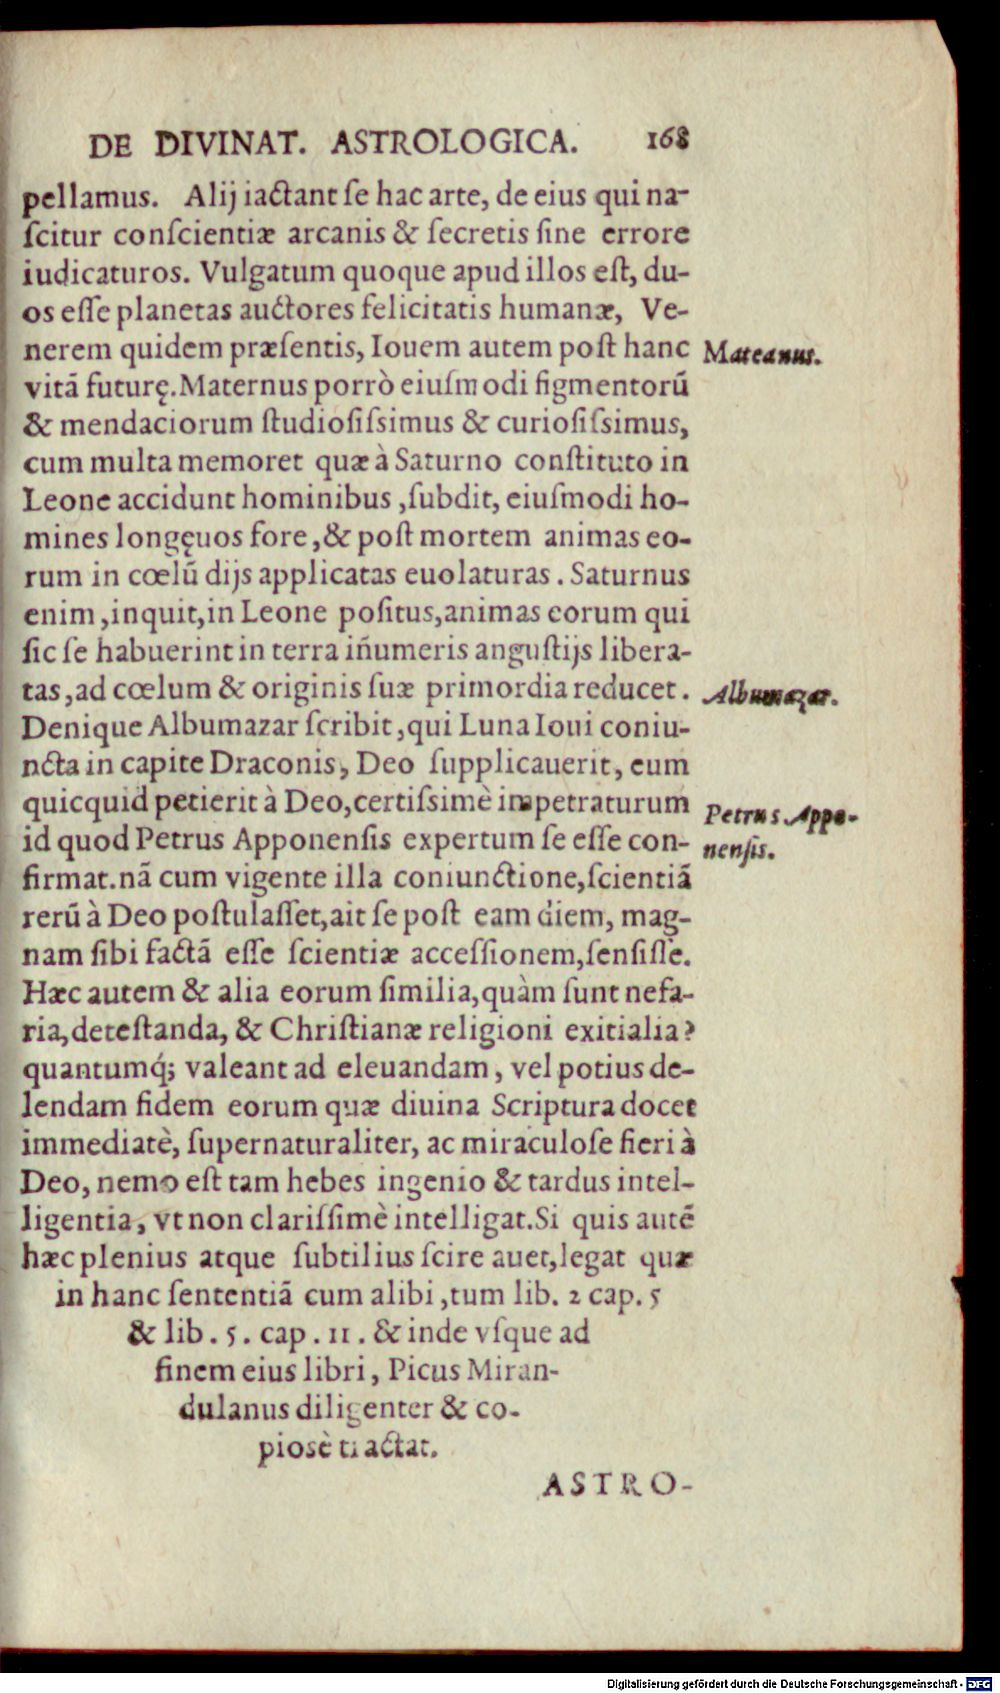 DE DIVINAT. ASTROLOGICA. 168
pellamus. Alij iactant ſe hac arte, de eius qui na-
ſcitur conſcientiæ arcanis & ſecretis ſine errore
iudicaturos. Vulgatum quoque apud illos eſt, du-
os eſſe planetas auctores felicitatis humanæ, Ve-
nerem quidem præſentis, Iouem autem poſt hanc
Mateanus.
vitã futurę. Maternus porrò eiuſmodi figmentorũ
& mendaciorum ſtudioſiſsimus & curioſiſsimus,
cum multa memoret quæ à Saturno conſtituto in
Leone accidunt hominibus, ſubdit, eiuſmodi ho-
mines longęuos fore, & poſt mortem animas eo-
rum in cœlũ dijs applicatas euolaturas. Saturnus
enim, inquit, in Leone poſitus, animas eorum qui
ſic ſe habuerint in terra iñumeris anguſtijs libera-
tas, ad cœlum & originis ſuæ primordia reducet.
Albumazar.
Denique Albumazar ſcribit, qui Luna Ioui coniu-
ncta in capite Draconis, Deo ſupplicauerit, eum
quicquid petierit à Deo, certiſsimè impetraturum
Petrus Appo-
id quod Petrus Apponenſis expertum ſe eſſe con-
nenſis.
firmat. nã cum vigente illa coniunctione, ſcientiã
rerũ à Deo poſtulaſſet, ait ſe poſt eam diem, mag-
nam ſibi factã eſſe ſcientiæ acceſſionem, ſenſiſſe.
Hæc autem & alia eorum ſimilia, quàm ſunt nefa-
ria, deteſtanda, & Chriſtianæ religioni exitialia?
quantumq́; valeant ad eleuandam, vel potius de-
lendam fidem eorum quæ diuina Scriptura docet
immediatè, ſupernaturaliter, ac miraculoſe fieri à
Deo, nemo eſt tam hebes ingenio & tardus intel-
ligentia, vt non clariſſimè intelligat. Si quis autẽ
hæc plenius atque ſubtilius ſcire auet, legat quæ
in hanc ſententiã cum alibi, tum lib. 2 cap. 5
& lib. 5. cap. 11. & inde vſque ad
finem eius libri, Picus Miran-
dulanus diligenter & co-
piosè tractat.
ASTRO-
Digitalisierung gefördert durch die Deutsche Forschungsgemeinschaft - DFG